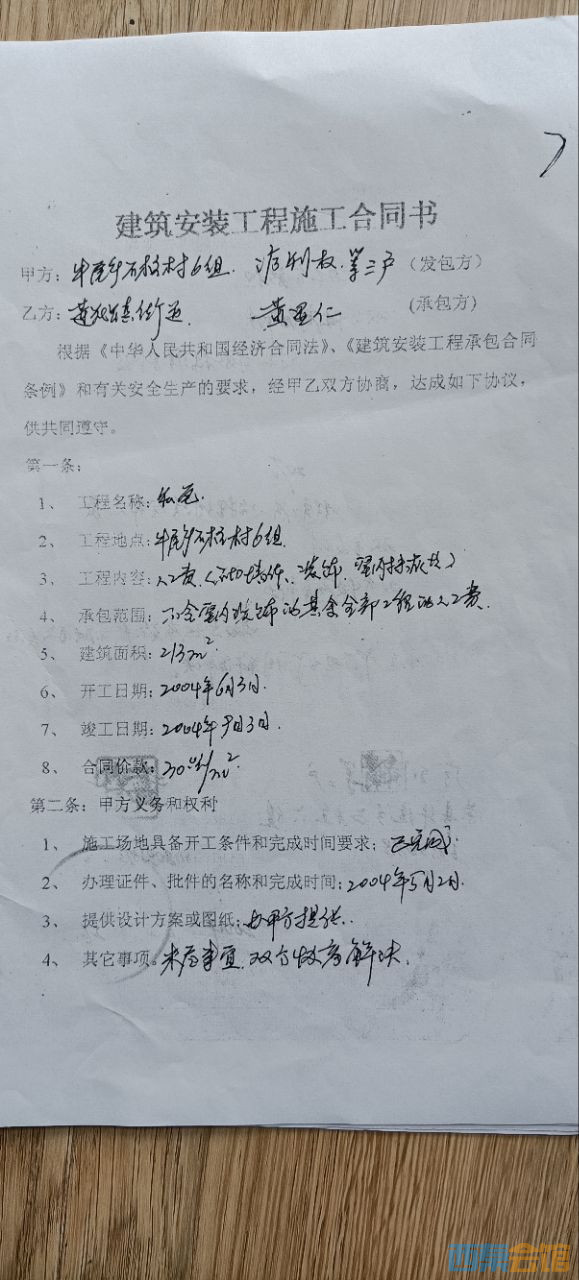 建筑安装工程施工合同书
甲方：石板村6组 （发包方）
乙方：街道 黄 仁 (承包方)
根据《中华人民共和国经济合同法》、《建筑安装工程承包合同
条例》和有关安全生产的要求，经甲乙双方协商，达成如下协议，
供共同遵守。
第一条：
1、 工程名称：
2、 工程地点：村6组
3、 工程内容：人工费
4、 承包范围：不含室内装饰的其余全部工程的人工费.
5、 建筑面积：213m²
6、 开工日期：2004年6月3日.
7、 竣工日期：2004年9月3日.
8、 合同价款：/m²
第二条：甲方义务和权利
1、 施工场地具备开工条件和完成时间要求；已完成
2、 办理证件、批件的名称和完成时间：2004年5月2日.
3、 提供设计方案或图纸：由甲方提供.
4、 其它事项。未尽事宜.双方协商解决.
西祠会馆